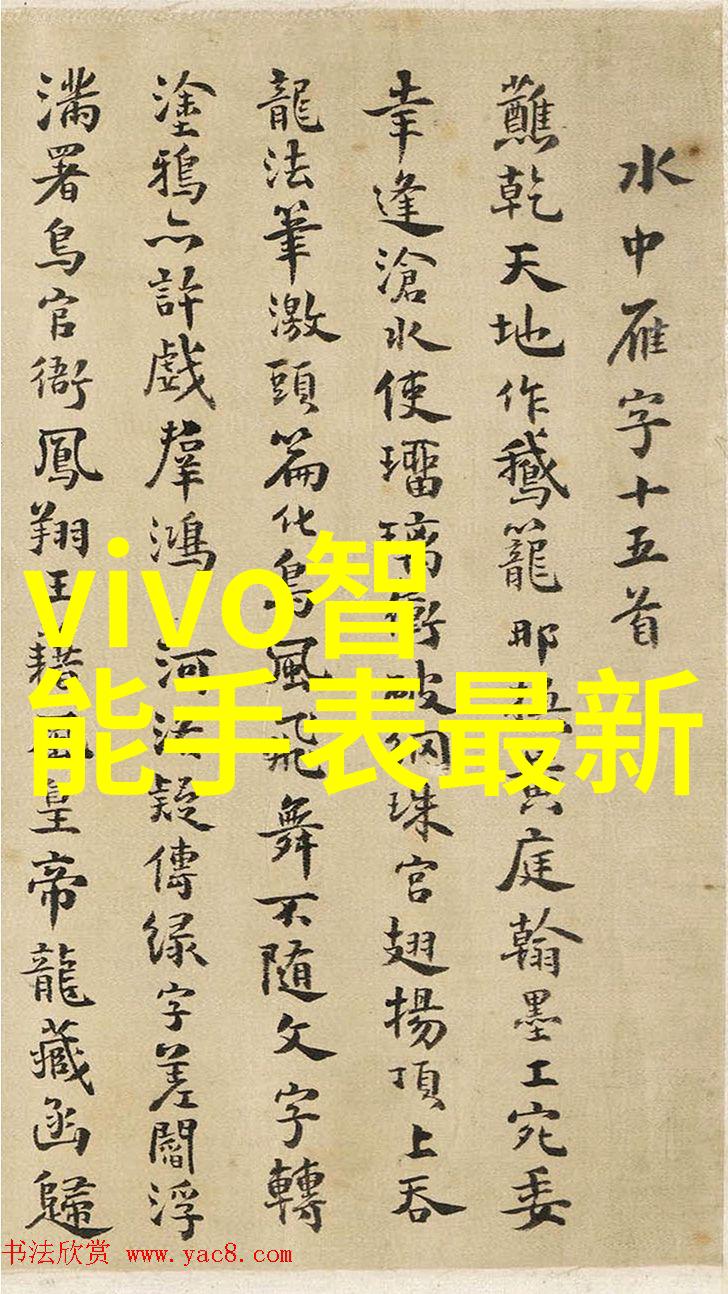 水中雁字十五首
蘸乾天地作鵝籠那黃庭翰墨工宛委
幸逢滄水使璢璃衝破網珠宮翅揚頂上吞
龍法筆激頭篇化鳥風飛舞不隨文字轉
塗鴉亦許戲羣鴻 河洛疑傳緑字差閻浮
滿署鳥官衙鳳翔王皇帝龍藏函歸
vivo智
能手表最新
书法欣赏 www.yac8.com